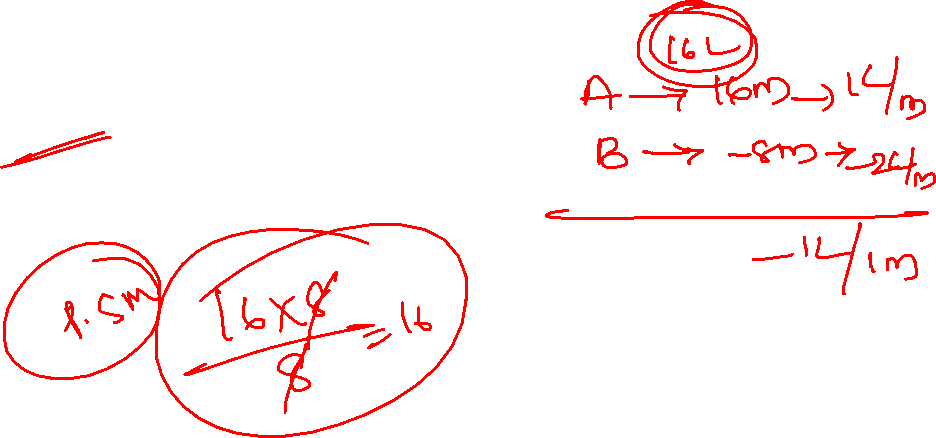 16L
A → 16m → 1L/m
B → -8m → -2L/m
-1L/1m
1.5m
16×8
= 16
8